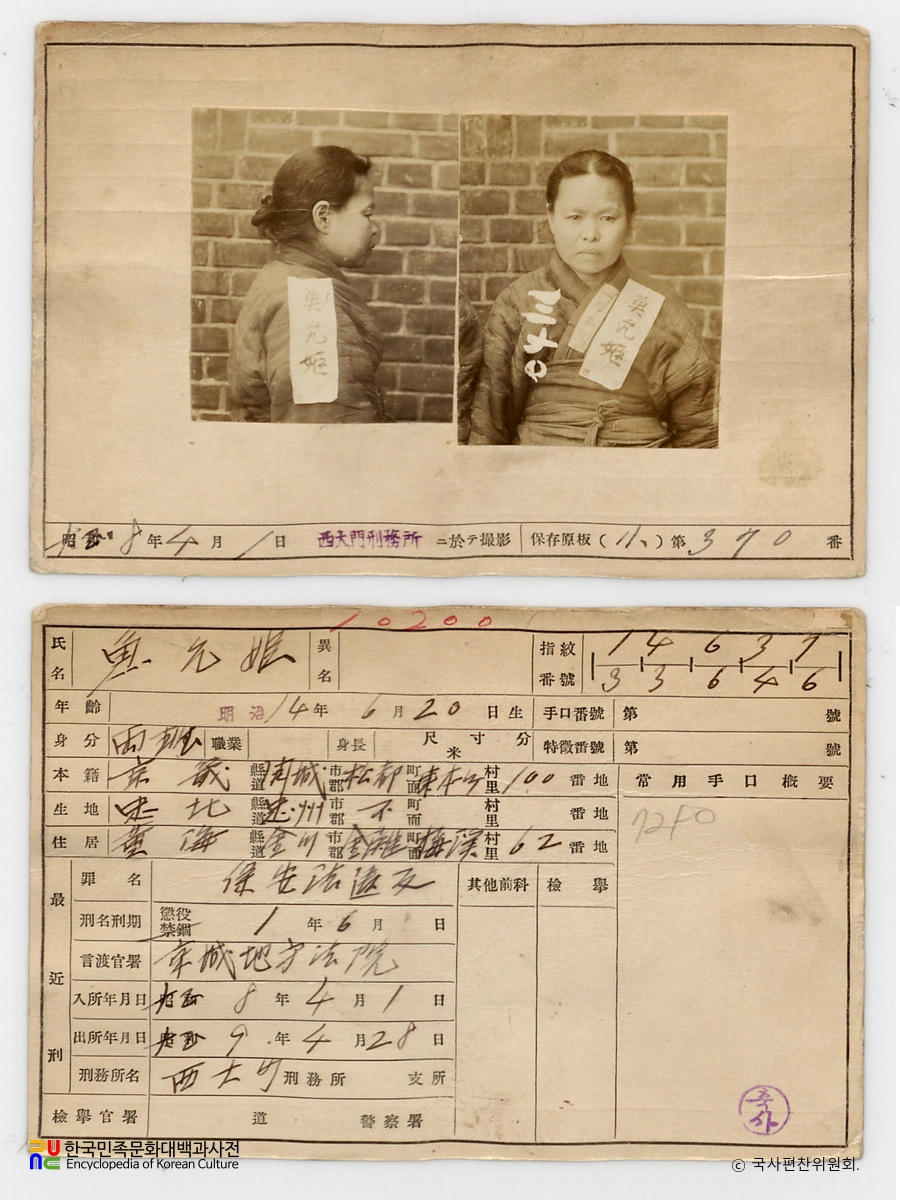 魚允姬
三七〇
魚允姬
昭和 8 年 4 月 1 日 西大門刑務所 ニ於テ撮影 保存原板 ( 小 ) 第 370 番
10200
氏名 魚允姬 異名 指紋番號 14637 33646
年齡 明治 14 年 6 月 20 日生 手口番號 第 號
身分 両班 職業 身長 尺寸分 米 特徵番號 第 號
本籍 京畿 縣道 開城 市郡 松都 町面 東本 村里 100 番地 常用手口概要
生地 忠北 縣道 忠州 市郡 不 町面 村里 番地
住居 黃海 縣道 金川 市郡 町面 村里 62 番地
最近刑
罪名 保安法違反 其他前科 檢擧
刑名刑期 懲役 禁錮 1 年 6 月 日
言渡官署 京城地方法院
入所年月日 昭和 8 年 4 月 1 日
出所年月日 昭和 9 年 4 月 28 日
刑務所名 西大門 刑務所 支所
檢擧官署 道 警察署
한국민족문화대백과사전
Encyclopedia of Korean Culture
© 국사편찬위원회.